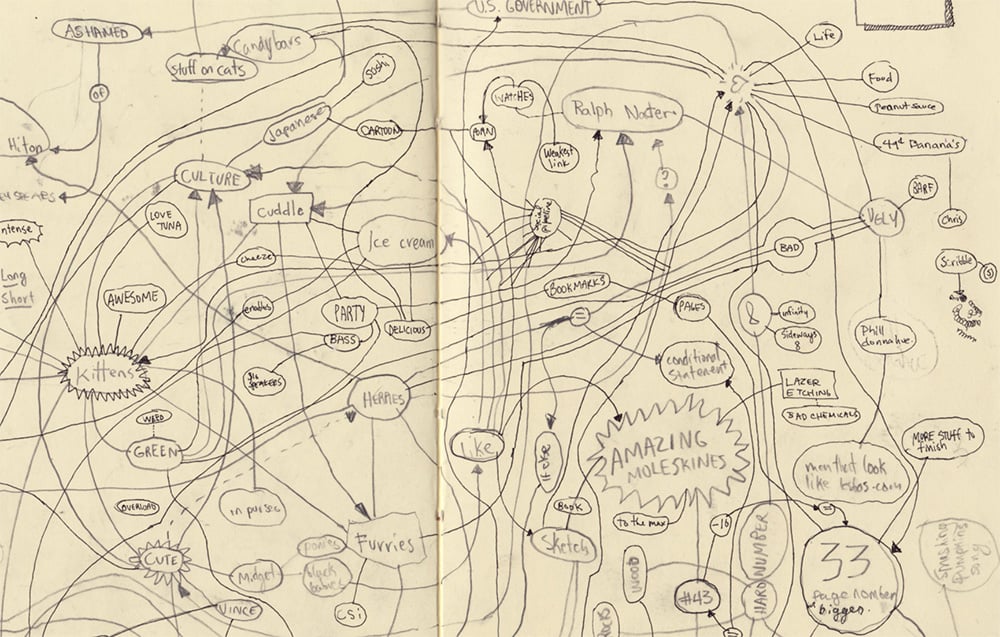 U.S. GOVERNMENT
ASHAMED
Candybars
Stuff on cats
Life
Sushi
Food
of
WATCHES
Peanut sauce
Ralph Nader
Japanese
CARTOON
Hilton
Weakest
link
CULTURE
?
BARF
Cuddle
Social
pipeline
UGLY
Chris
LOVE
TUNA
Intense
Ice cream
BAD
Scribble
Long
Short
AWESOME
enables
BOOKMARKS
PAGES
PARTY
DELICIOUS
=
&
infinity
Sideways
8
BASS
Phill
donnahue
Kittens
conditional
Statement
HERPIES
LAZER
ETCHING
BAD CHEMICALS
WEED
GREEN
Like
If else
AMAZING
MOLESKINES
MORE STUFF to
finish
men that look
like
OVERLOAD
in purses
BOOK
to the max
-16
=
HARD NUMBER
CUTE
ponies
Furries
Sketch
33
page number
bigger.
Smashing
pumpkins
song
Midget
black
babies
WOOD
#43
VINCE
CSi
=